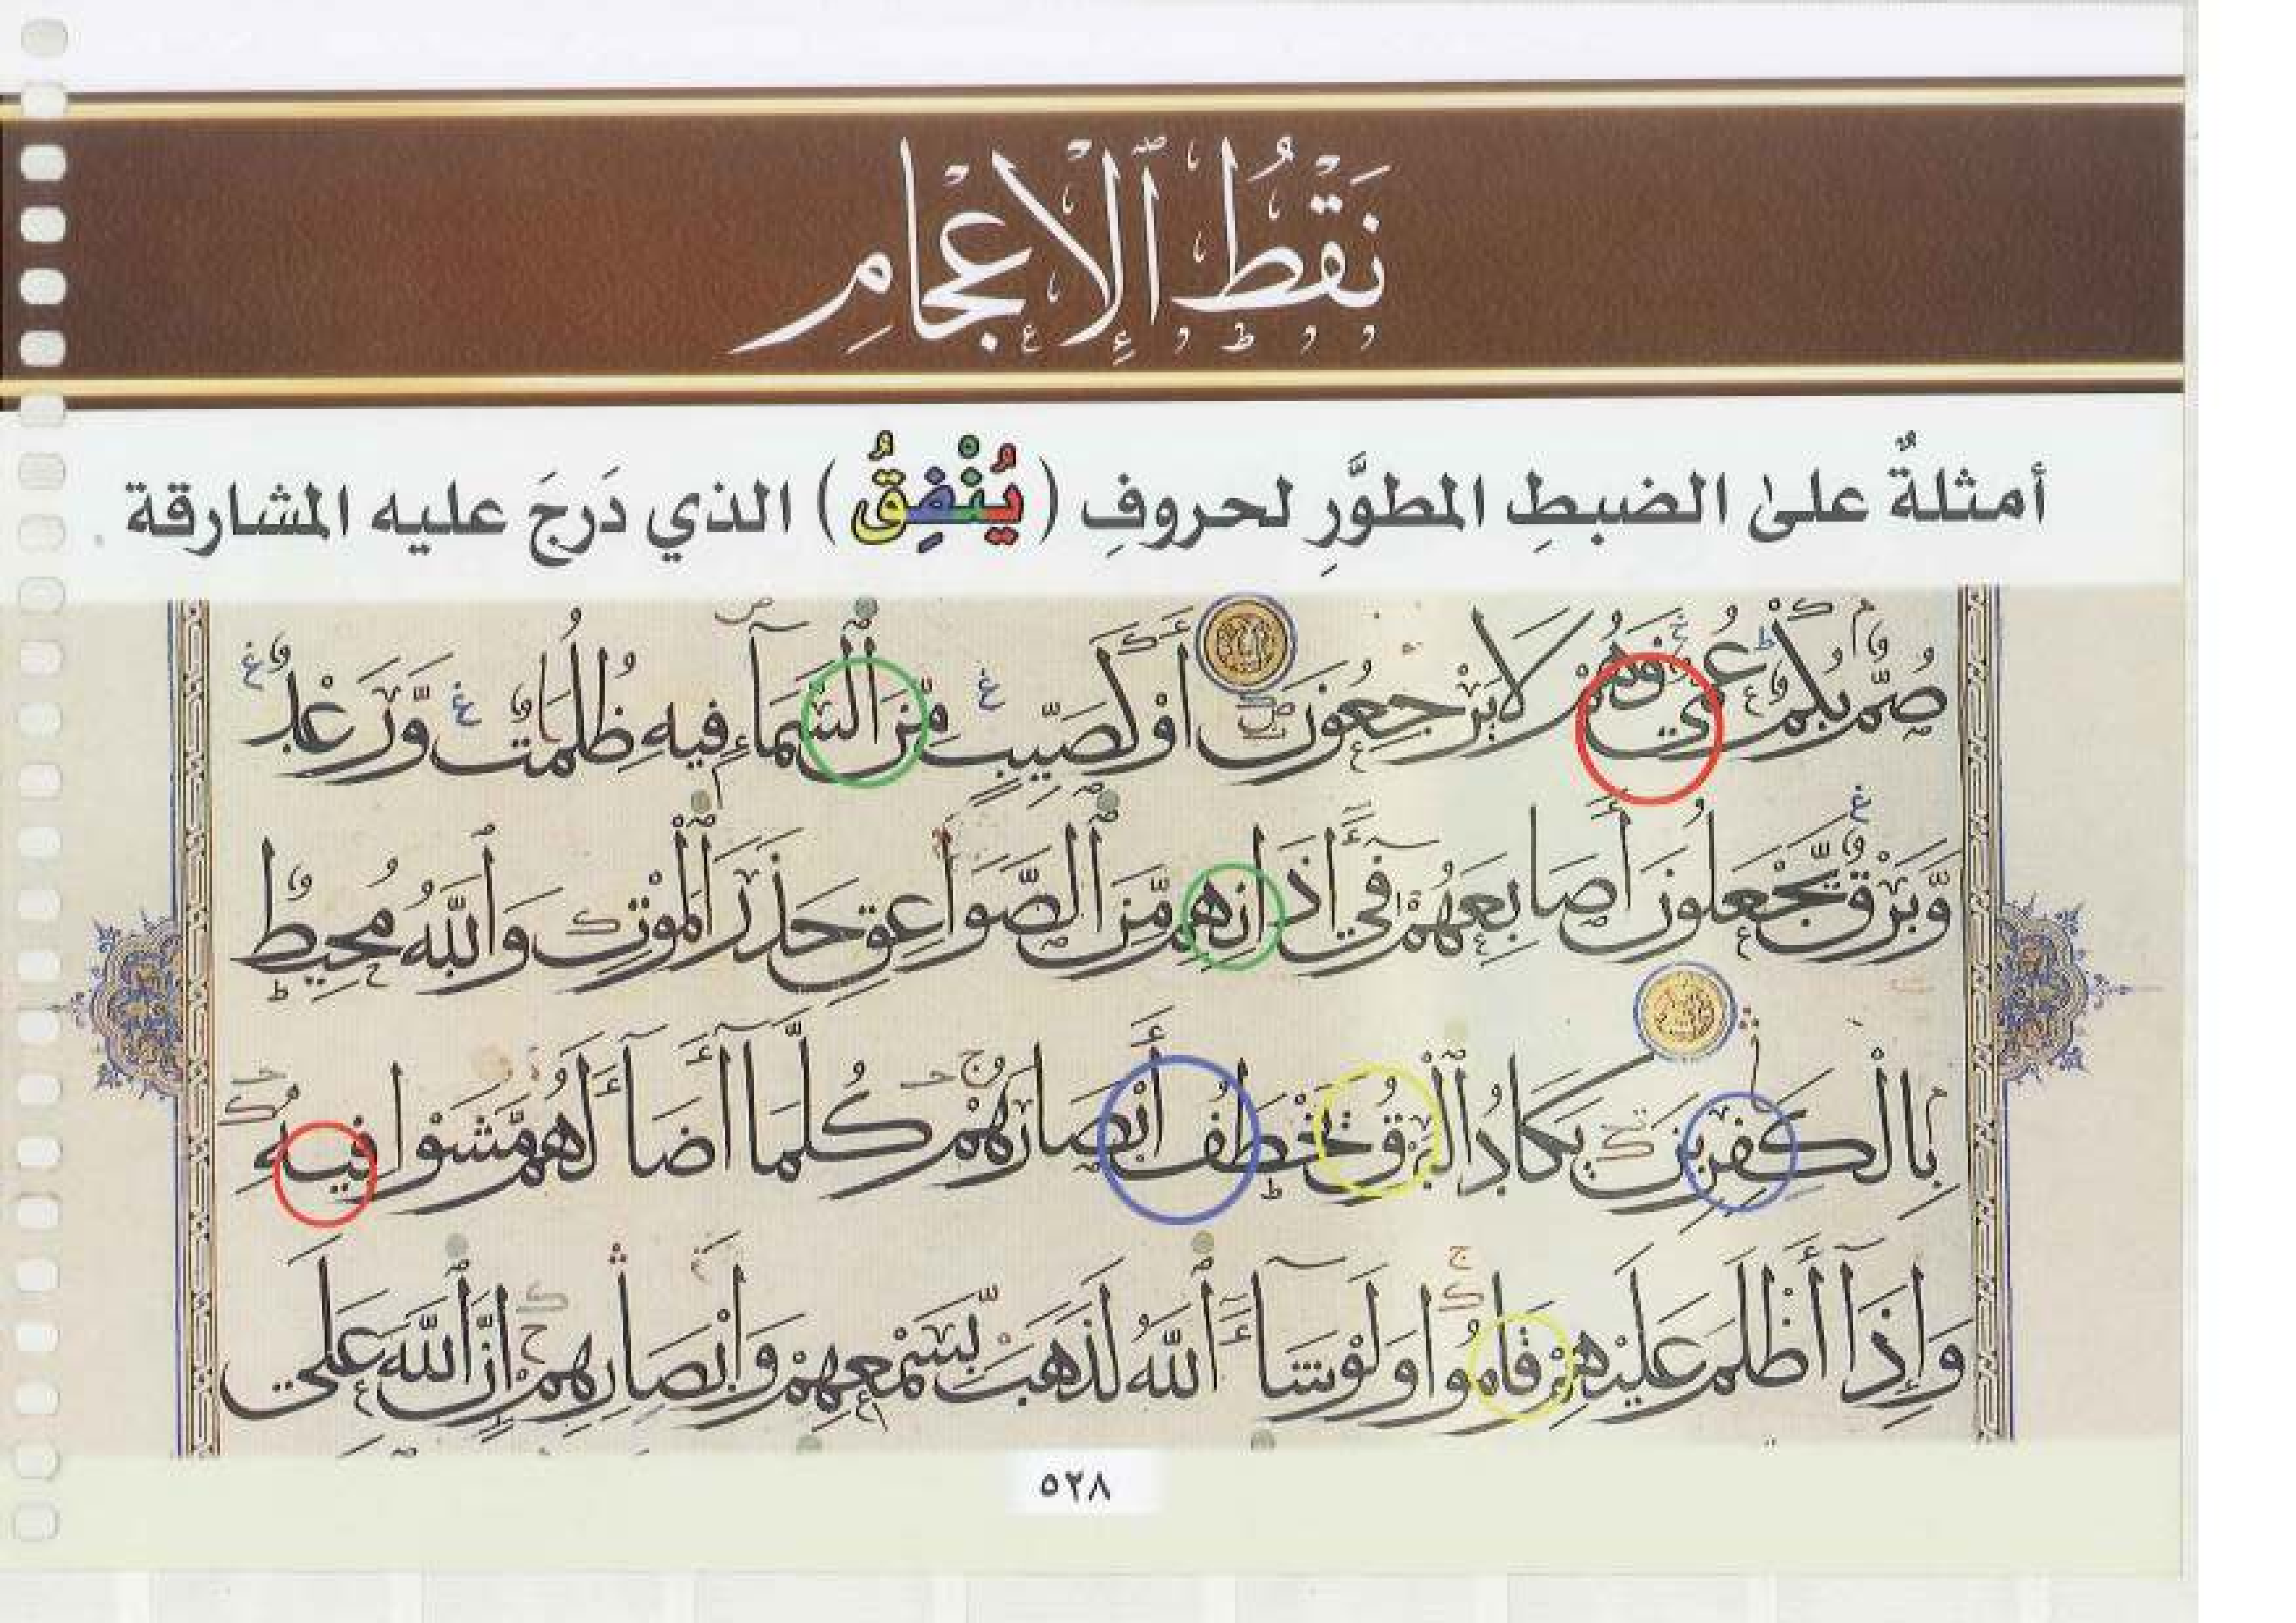 نَقْطُ ٱلْإِعْجَامِ
أمثلةٌ علىٰ الضبطِ المطوَّرِ لحروفِ (يُنْفِقُ) الذي دَرجَ عليه المشارقة
صُمٌّ بُكْمٌ عُمْيٌ فَهُمْ لَا يَرْجِعُونَ أَوْ كَصَيِّبٍ مِّنَ السَّمَآءِ فِيهِ ظُلُمَاتٌ وَّرَعْدٌ
وَّبَرْقٌ يَّجْعَلُونَ أَصَابِعَهُمْ فِيٓ اٰذَانِهِم مِّنَ الصَّوَاعِقِ حَذَرَ الْمَوْتِ وَاللَّهُ مُحِيطٌ
بِالْكَفِرِينَ يَكَادُ الْبَرْقُ يَخْطَفُ أَبْصَارَهُمْ كُلَّمَآ أَضَآءَ لَهُم مَّشَوْا فِيهِ
وَإِذَآ أَظْلَمَ عَلَيْهِمْ قَامُوا وَلَوْ شَآءَ اللَّهُ لَذَهَبَ بِسَمْعِهِمْ وَأَبْصَارِهِمْ إِنَّ اللَّهَ عَلَى
٥٢٨